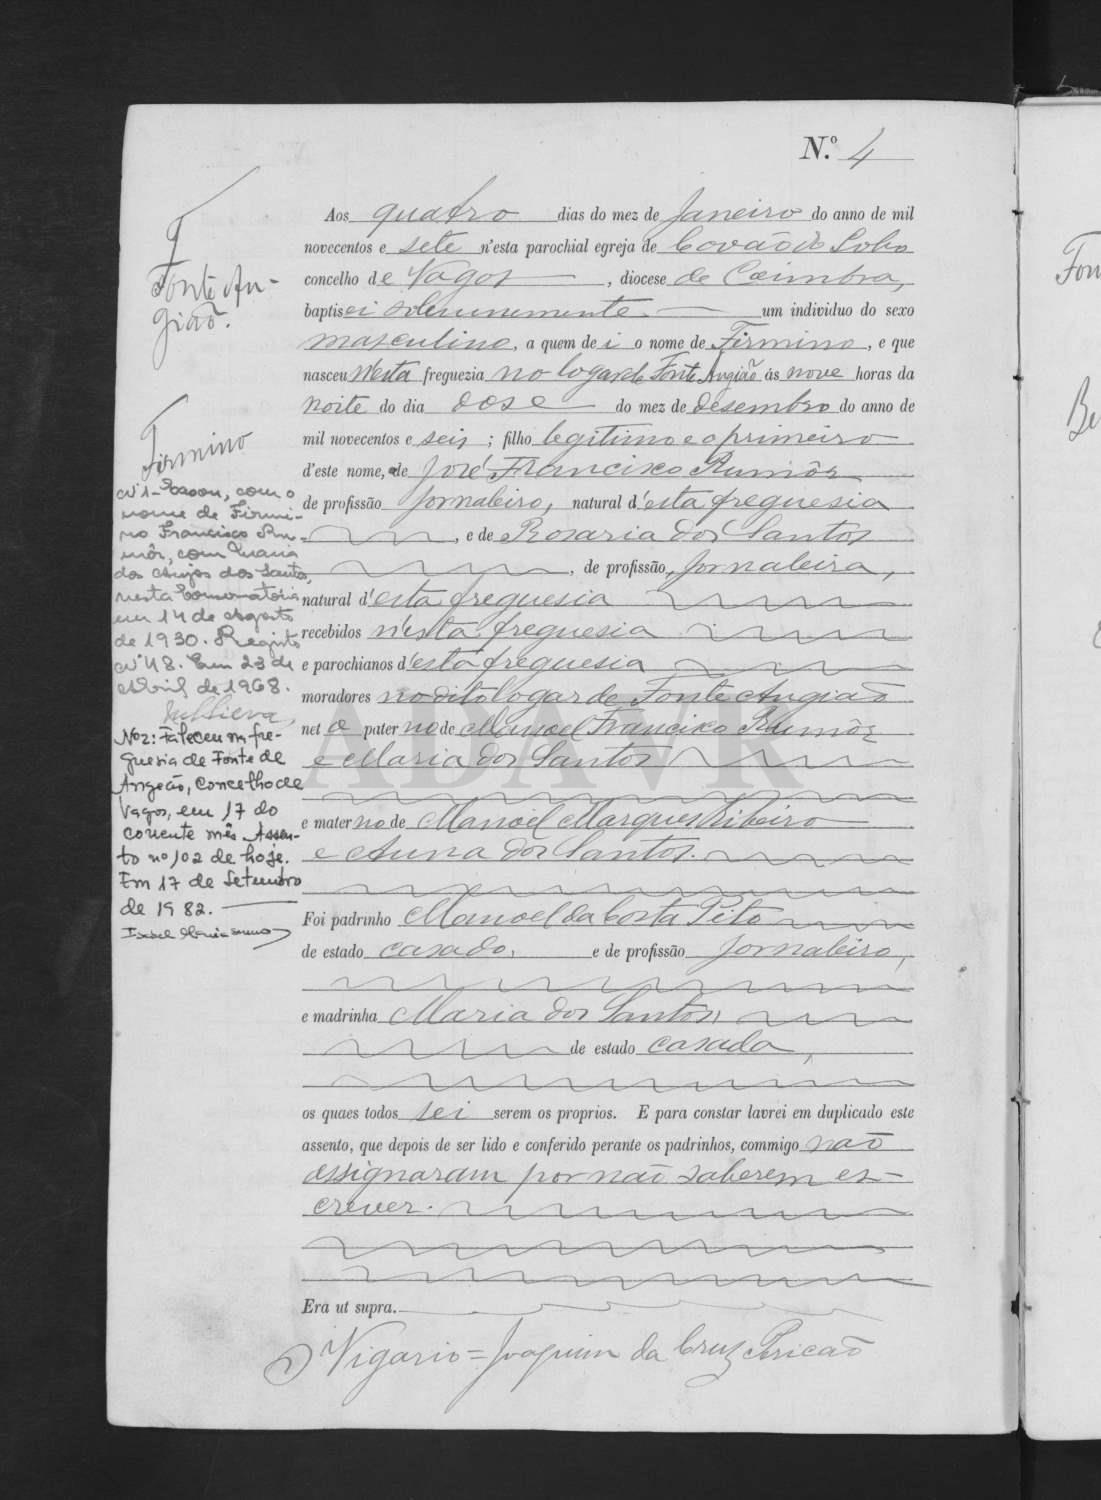 N.º 4
Aos quatro dias do mez de Janeiro do anno de mil
novecentos e sete n'esta parochial egreja de Covão do Lobo
concelho de Vagos, diocese de Coimbra,
baptisei solemnemente um individuo do sexo
masculino, a quem dei o nome de Firmino, e que
nasceu N'esta freguezia no logar de Fonte Angião ás nove horas da
noite do dia dose do mez de desembro do anno de
mil novecentos e seis; filho legitimo e o primeiro
d'este nome, de José Francisco Rumôr
de profissão Jornaleiro, natural d'esta freguesia
, e de Rosaria dos Santos
, de profissão Jornaleira,
natural d'esta freguesia
recebidos n'esta freguesia
e parochianos d'esta freguesia
moradores no dito logar de Fonte Angião
neto paterno de Manoel Francisco Rumôr
e Maria dos Santos
e materno de Manoel Marques Ribeiro
e Anna dos Santos.
Foi padrinho Manoel da Costa Pito
de estado casado, e de profissão Jornaleiro,
e madrinha Maria dos Santos,
de estado casada,
os quaes todos sei serem os proprios. E para constar lavrei em duplicado este
assento, que depois de ser lido e conferido perante os padrinhos, commigo não
assignaram por não saberem es-
crever.
Era ut supra.
O Vigario = Joaquim da Cruz Pericão
Fonte An-
gião.
Firmino
Nº 1 - Casou, com o
nome de Firmi-
no Francisco Ru-
môr, com Maria
dos Anjos dos Santos,
nesta Conservatória
em 14 de Agosto
de 1930. Registo
Nº 48. Em 23 de
Abril de 1968.
Nº 2: Faleceu na fre-
guesia de Fonte de
Angeão, Concelho de
Vagos, em 17 do
corrente mês. Assen-
to nº 102 de hoje.
Em 17 de Setembro
de 1982.
ADAVR